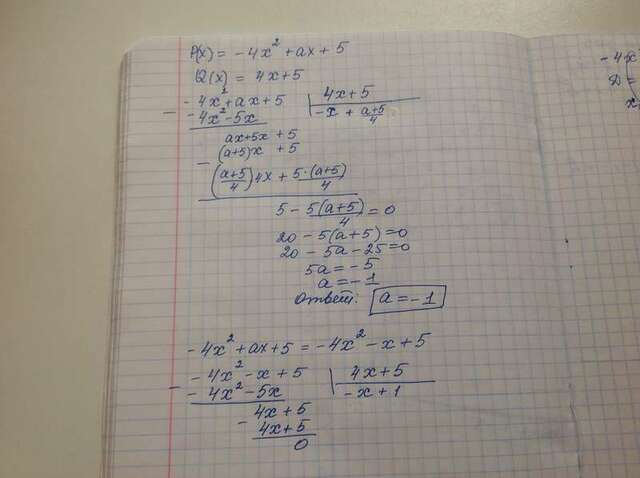 P(x) = -4x² + ax + 5
Q(x) = 4x+5
- -4x²+ax+5 | 4x+5
-4x²-5x | -x + (a+5)/4
ax+5x+5
- (a+5)x + 5
((a+5)/4)4x + 5·(a+5)/4
5 - 5(a+5)/4 = 0
20 - 5(a+5)=0
20 - 5a - 25=0
5a = -5
a = -1
Ответ: a = -1
-4x²+ax+5 = -4x²-x+5
- -4x²-x+5 | 4x+5
-4x²-5x | -x+1
- 4x+5
4x+5
0
-4x
D=
x